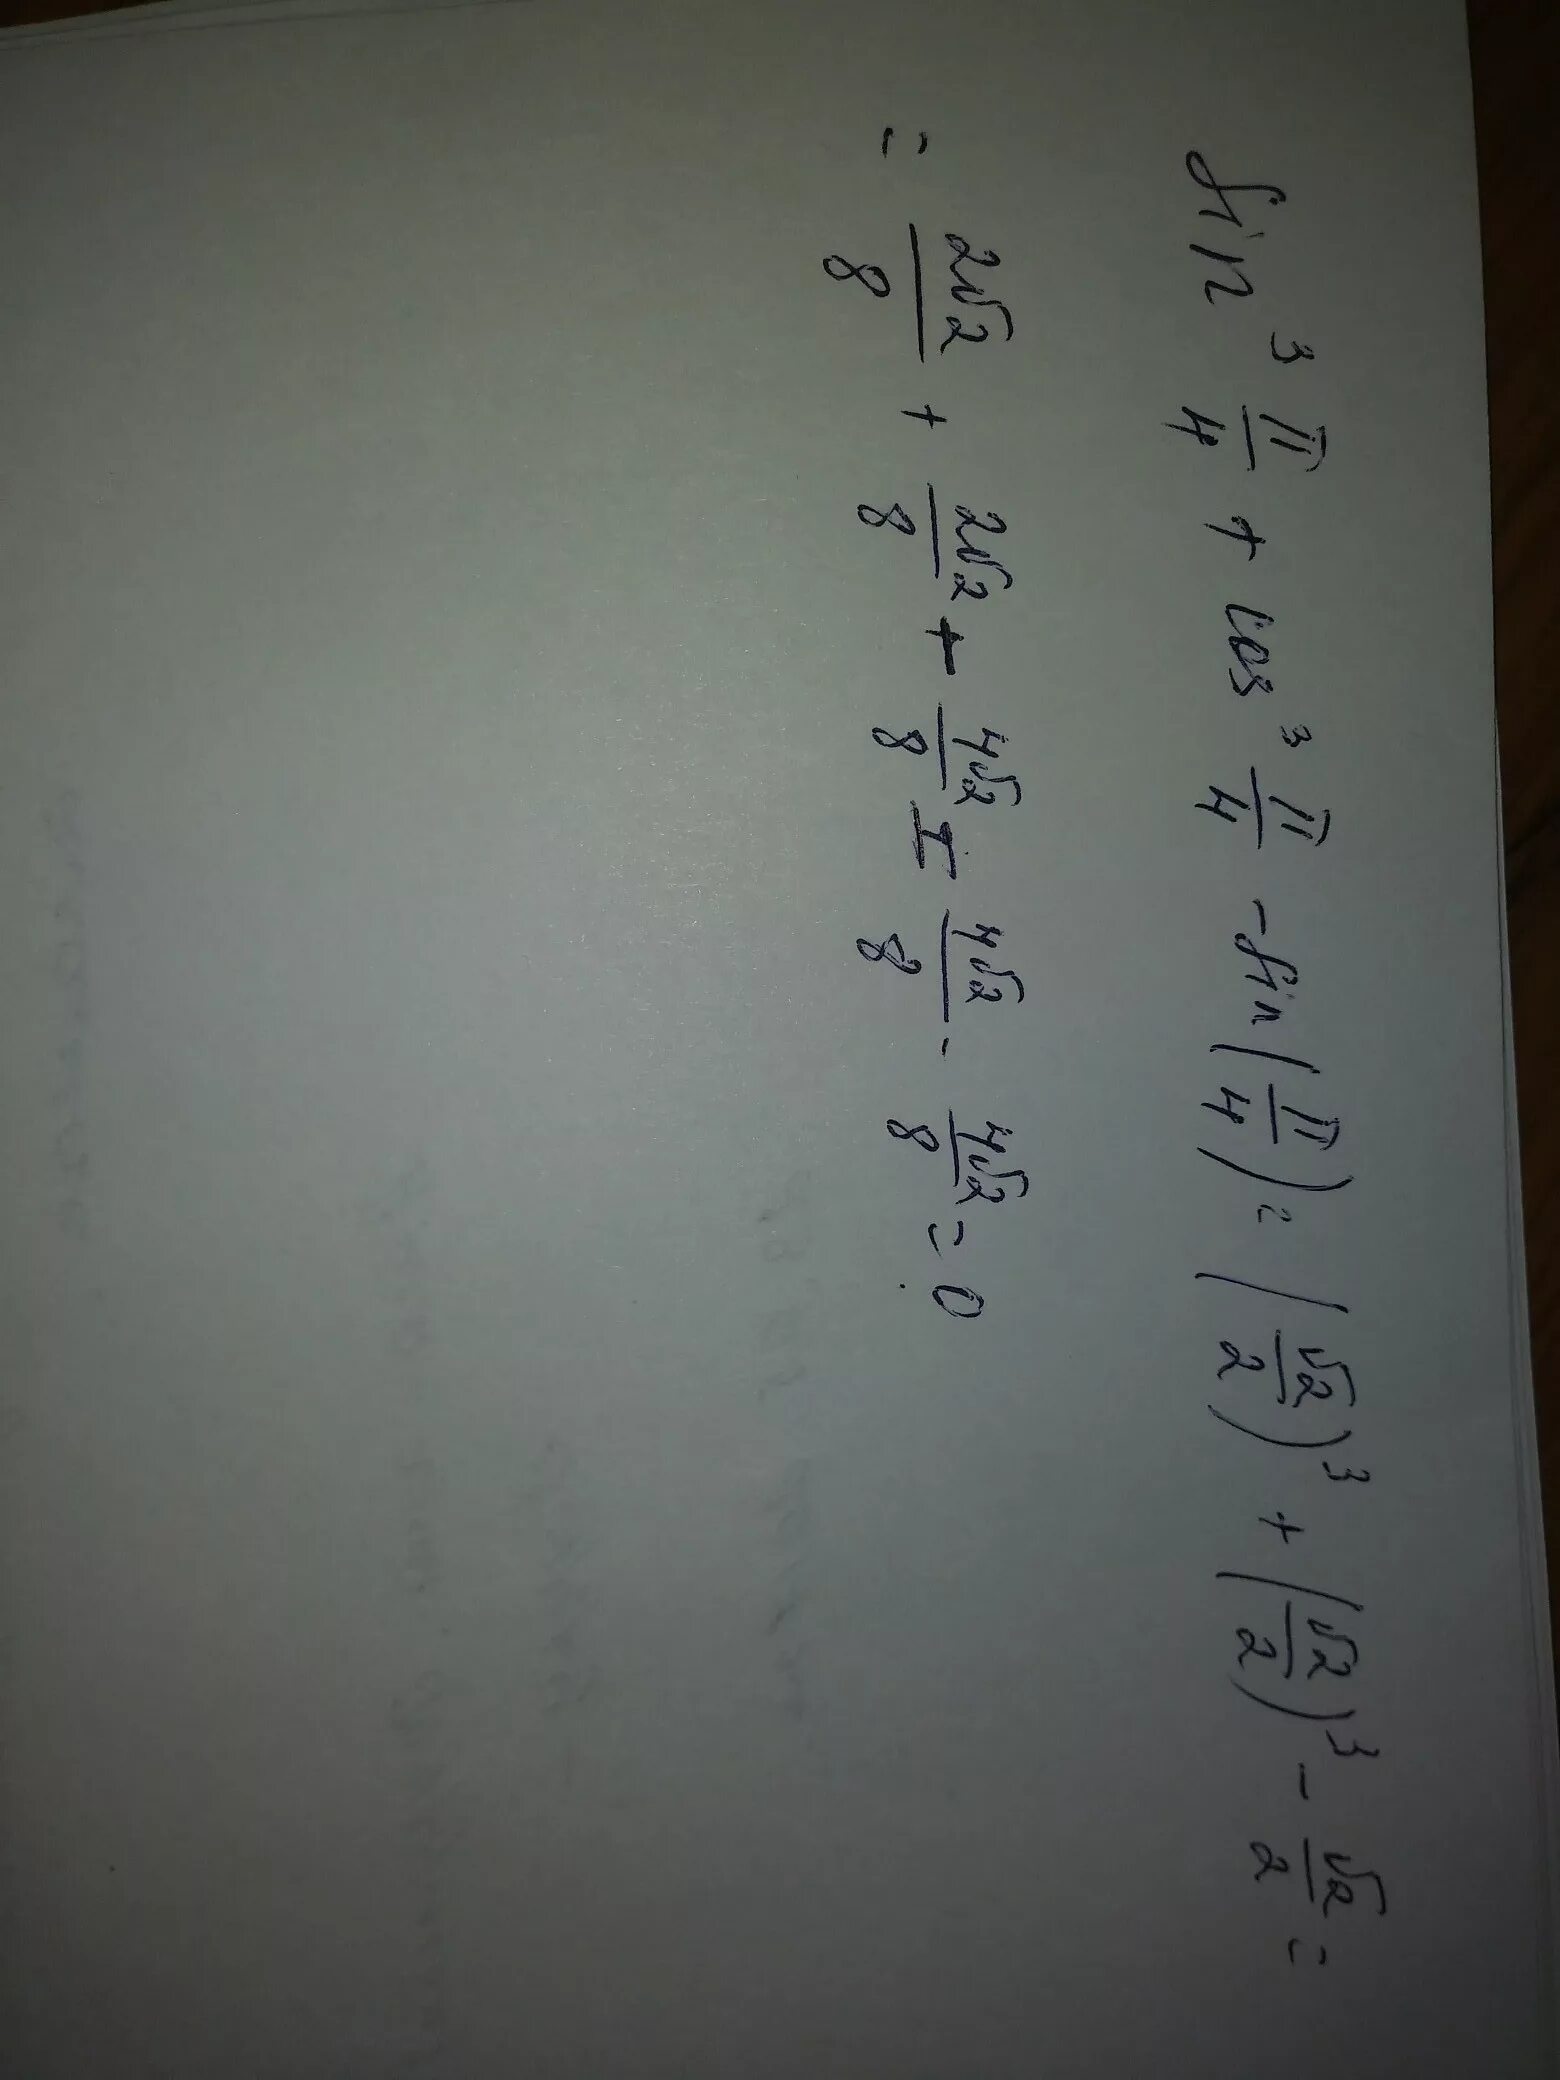 sin³ π/4 + cos³ π/4 - sin(π/4) = (√2/2)³ + (√2/2)³ - √2/2 =
= 2√2/8 + 2√2/8 + 4√2/8 = 4√2/8 - 4√2/8 = 0